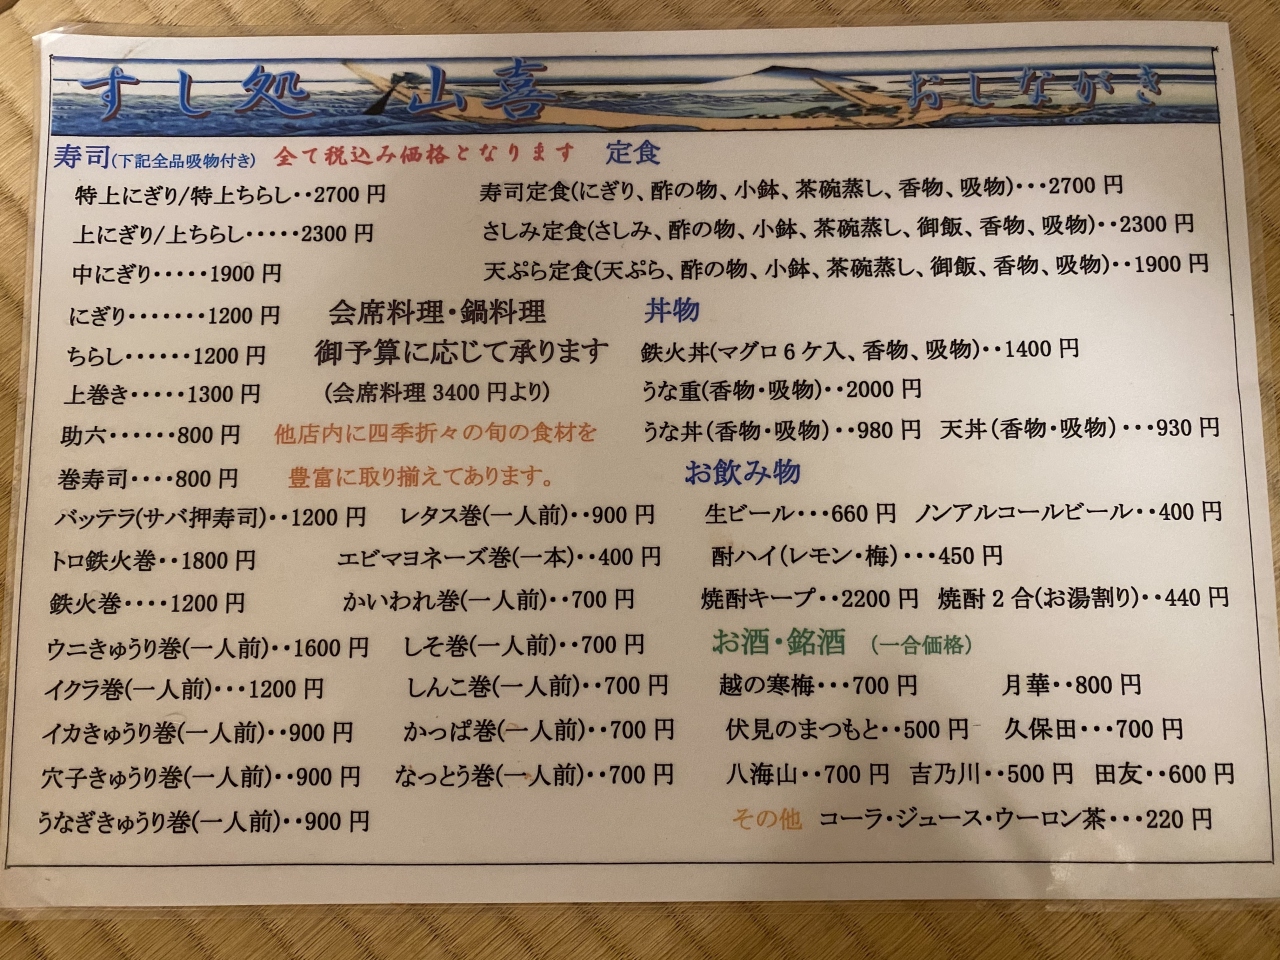 すし処 山喜 おしながき
寿司(下記全品吸物付き) 全て税込み価格となります
特上にぎり/特上ちらし‥2700 円
上にぎり/上ちらし‥‥‥2300 円
中にぎり‥‥‥1900 円
にぎり‥‥‥‥1200 円
ちらし‥‥‥1200 円
上巻き‥‥‥1300 円
助六‥‥‥800 円
巻寿司‥‥800 円
バッテラ(サバ押寿司)‥1200 円
トロ鉄火巻‥1800 円
鉄火巻‥‥1200 円
ウニきゅうり巻(一人前)‥1600 円
イクラ巻(一人前)…1200 円
イカきゅうり巻(一人前)‥900 円
穴子きゅうり巻(一人前)‥900 円
うなぎきゅうり巻(一人前)‥900 円
会席料理・鍋料理
御予算に応じて承ります
(会席料理 3400 円より)
他店内に四季折々の旬の食材を
豊富に取り揃えてあります。
レタス巻(一人前)‥900 円
エビマヨネーズ巻(一本)‥400 円
かいわれ巻(一人前)‥700 円
しそ巻(一人前)‥700 円
しんこ巻(一人前)‥700 円
かっぱ巻(一人前)‥700 円
なっとう巻(一人前)‥700 円
定食
寿司定食(にぎり、酢の物、小鉢、茶碗蒸し、香物、吸物)…2700 円
さしみ定食(さしみ、酢の物、小鉢、茶碗蒸し、御飯、香物、吸物)‥2300 円
天ぷら定食(天ぷら、酢の物、小鉢、茶碗蒸し、御飯、香物、吸物)‥1900 円
丼物
鉄火丼(マグロ 6 ケ入、香物、吸物)‥1400 円
うな重(香物・吸物)‥2000 円
うな丼(香物・吸物)‥980 円 天丼(香物・吸物)…930 円
お飲み物
生ビール…660 円 ノンアルコールビール‥400 円
酎ハイ(レモン・梅)…450 円
焼酎キープ‥2200 円 焼酎 2 合(お湯割り)‥440 円
お酒・銘酒 (一合価格)
越の寒梅…700 円 月華‥800 円
伏見のまつもと‥500 円 久保田…700 円
八海山‥700 円 吉乃川‥500 円 田友‥600 円
その他 コーラ・ジュース・ウーロン茶…220 円